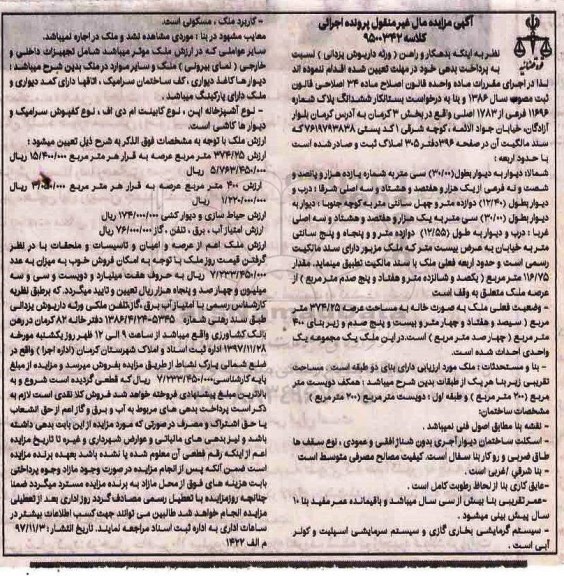 آگهی مزایده مال غیر منقول پرونده اجرائی
کلاسه ۹۵۰۰۳۴۲
نظر به اینکه بدهکار و راهن (ورثه داریوش یزدانی) نسبت
به پرداخت بدهی خود در مهلت تعیین شده اقدام ننموده اند
لذا در اجرای مقررات ماده واحده قانون اصلاح ماده ۳۴ اصلاحی قانون
ثبت مصوب سال ۱۳۸۶ و بنا به درخواست بستانکار ششدانگ پلاک شماره
۱۱۶۹۶ فرعی از ۱۷۸۳ اصلی واقع در بخش ۳ کرمان به آدرس کرمان بلوار
آزادگان، خیابان جواد الائمه، کوچه شرقی ۱ کد پستی ۷۶۱۹۷۹۳۸۳۸ که
سند مالکیت آن در صفحه ۳۹۶ دفتر ۳۰۵ املاک ثبت و صادر شده است
با حدود اربعه :
شمالا: دیوار به دیوار بطول (۳۰/۰۰) سی متر به شماره یازده هزار و پانصد و
شصت و نه فرعی از یک هزار و هفتصد و هشتاد و سه اصلی شرقا : درب و
دیوار بطول (۱۲/۴۰) دوازده متر و چهل سانتی متر به کوچه جنوبا : دیوار به
دیوار بطول (۳۰/۰۰) سی متر به یک هزار و هفتصد و هشتاد و سه اصلی
غربا : درب و دیوار به طول (۱۲/۵۵) دوازده متر و پنجاه و پنج سانتی
متر به خیابان به عرض بیست متر که ملک مزبور دارای سند مالکیت
رسمی است و حدود اربعه فعلی ملک با سند مالکیت تطبیق مینماید. مقدار
۱۱۶/۷۵ متر مربع (یکصد و شانزده متر و هفتاد و پنج صدم متر مربع) از
عرصه ملک متعلق به وقف است
- وضعیت فعلی ملک به صورت خانه به مساحت عرصه ۳۷۴/۲۵ متر
مربع (سیصد و هفتاد و چهار متر و بیست و پنج صدم و زیر بنای ۴۰۰
متر مربع (چهار صد متر مربع) است. در این ملک یک مجموعه یک
واحدی احداث شده است.
- بنا و مستحدثات : ملک مورد ارزیابی دارای بنای دو طبقه است. مساحت
تقریبی زیر بنا هر یک از طبقات بدین شرح میباشد : همکف دویست متر
مربع (۲۰۰ متر مربع) و طبقه اول : دویست متر مربع (۲۰۰ متر مربع)
مشخصات ساختمان:
- نقشه بنا مطابق اصول فنی نمیباشد .
- اسکلت ساختمان دیوار آجری بدون شناژ افقی و عمودی ، نوع سقف ها
طاق ضربی و روکار بنا سفال است. کیفیت مصالح مصرفی متوسط است
- بنا شرقی / غربی است .
- عایق کاری بنا از لحاظ رطوبت کامل است .
- عمر تقریبی بنا بیش از سی سال میباشد و باقیمانده عمر مفید بنا ۱۰
سال پیش بینی میشود .
- سیستم گرمایشی بخاری گازی و سیستم سرمایشی اسپلیت و کولر
آبی است .
- کاربرد ملک ، مسکونی است.
معایب مشهود در بنا : موردی مشاهده نشد و ملک در اجاره نمیباشد.
سایر عواملی که در ارزش ملک موثر میباشد شامل تجهیزات داخلی و
خارجی (نمای بیرونی) ملک و سایر موارد در ملک بدین شرح میباشد :
دیوار ها کاغذ دیواری ، کف ساختمان سرامیک ، اتاقها دارای کمد دیواری و
ملک دارای پارکینگ میباشد .
- نوع آشپزخانه اپن ، نوع کابینت ام دی اف ، نوع کفپوش سرامیک و
دیوار ها کاشی است.
ارزش ملک با توجه به مشخصات فوق الذکر به شرح ذیل تعیین میشود :
ارزش ۳۷۴/۲۵ متر مربع عرصه به قرار هر متر مربع ۱۵/۴۰۰/۰۰۰ ریال
۵/۷۶۳/۴۵۰/۰۰۰ ریال
ارزش ۴۰۰ متر مربع عرصه به قرار هر متر مربع ریال
۱/۲۲۰/۰۰۰/۰۰۰ ریال
ارزش حیاط سازی و دیوار کشی ۱۷۴/۰۰۰/۰۰۰ ریال
ارزش امتیاز آب ، برق ، تلفن ، گاز ۷۶/۰۰۰/۰۰۰ ریال
ارزش ملک اعم از عرصه و اعیان و تاسیسات و ملحقات با در نظر
گرفتن قیمت روز ملک با توجه به امکان فروش خوب به میزان به عدد
۷/۲۳۳/۴۵۰/۰۰۰ ریال به حروف هفت میلیارد و دویست و سی و سه
میلیون و چهار صد و پنجاه هزار ریال تعیین و تایید میگردد. که برطبق نظریه
کارشناس رسمی با امتیاز آب برق ، گاز تلفن ملکی ورثه داریوش یزدانی
طبق سند رهنی شماره ۵۳۴۵-۱۳۸۶/۴/۲۳ دفتر خانه ۸۲ کرمان در رهن
بانک کشاورزی واقع میباشد از ساعت ۹ الی ۱۲ ظهر روز یکشنبه مورخه
۱۳۹۷/۱۱/۲۸ اداره ثبت اسناد و املاک شهرستان کرمان (اداره اجرا) واقع در
ضلع شمالی پارک نشاط از طریق مزایده بفروش میرسد و مزایده از مبلغ
پایه کارشناسی ۷/۲۳۳/۴۵۰/۰۰۰ ریال که قطعی گردیده است شروع و به
بالاترین مبلغ پیشنهادی فروخته خواهد شد فروش کلا نقدی است لازم به
ذکر است پرداخت بدهی های مربوط به آب و برق و گاز اعم از حق انشعاب
یا حق اشتراک و مصرف در صورتی که مورد مزایده از این بابت بدهی داشته
باشد و نیز بدهی های مالیاتی و عوارض شهرداری و غیره تا تاریخ مزایده
اعم از اینکه رقم قطعی آن معلوم شده یا نشده باشد بعهده برنده مزایده
است ضمن آنکه پس از انجام مزایده در صورت وجود مازاد وجوه پرداختی
بابت هزینه های فوق از محل مازاد به برنده مزایده مسترد میگردد ضمنا
چنانچه روز مزایده با تعطیل رسمی مصادف گردد روز اداری بعد از تعطیلی
مزایده انجام خواهد شد طالبین می توانند جهت کسب اطلاعات بیشتر در
ساعات اداری به اداره ثبت اسناد مراجعه نمایند. تاریخ انتشار : ۹۷/۱۱/۳
م الف ۱۴۲۲